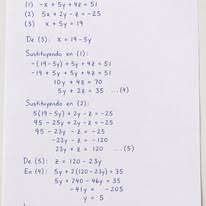 (1) -x + 5y + 4z = 51
(2) 5x + 2y - z = -25
(3) x + 5y = 19
De (3): x = 19 - 5y
Sustituyendo en (1):
-(19-5y) + 5y + 4z = 51
-19 + 5y + 5y + 4z = 51
10y + 4z = 70
5y + 2z = 35 ...(4)
Sustituyendo en (2):
5(19-5y) + 2y - z = -25
95 - 25y + 2y - z = -25
95 - 23y - z = -25
-23y - z = -120
23y + z = 120 ...(5)
De (5): z = 120 - 23y
En (4): 5y + 2(120-23y) = 35
5y + 240 - 46y = 35
-41y = -205
y = 5